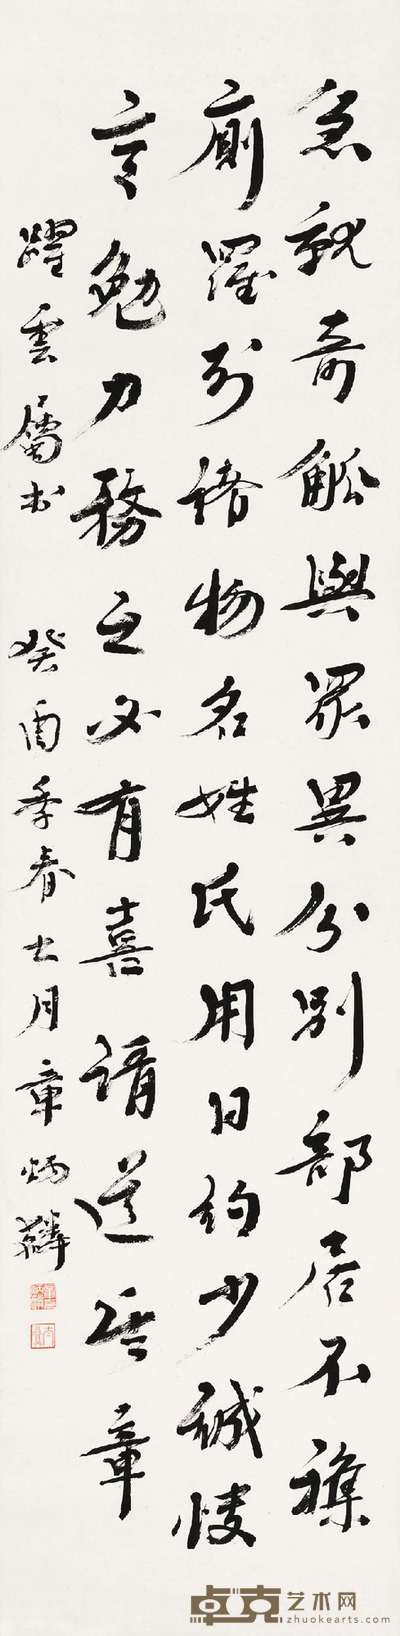 急就奇觚與眾異分別部居不襍
廁羅列諸物名姓氏用日約少誠快
意勉力務之必有喜請道其章
躍雲屬書 癸酉季春之月章炳麟
卓克艺术网
zhuokearts.com